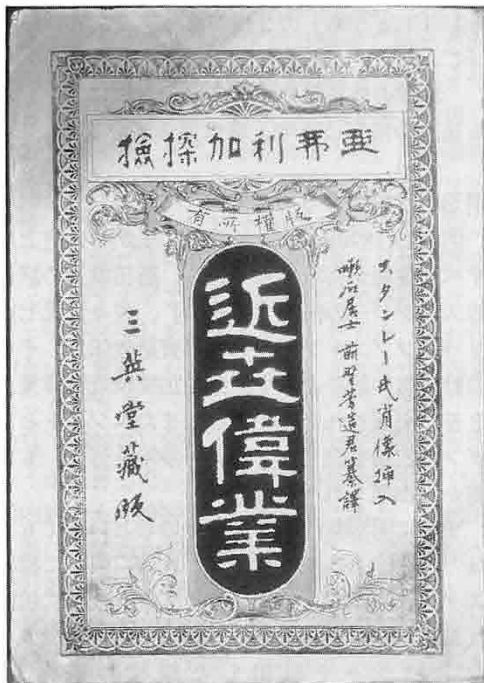 亜弗利加探撿
版權所有
スタンレー氏肖像挿入
居士 前野造君纂譯
近世偉業
三英堂藏版